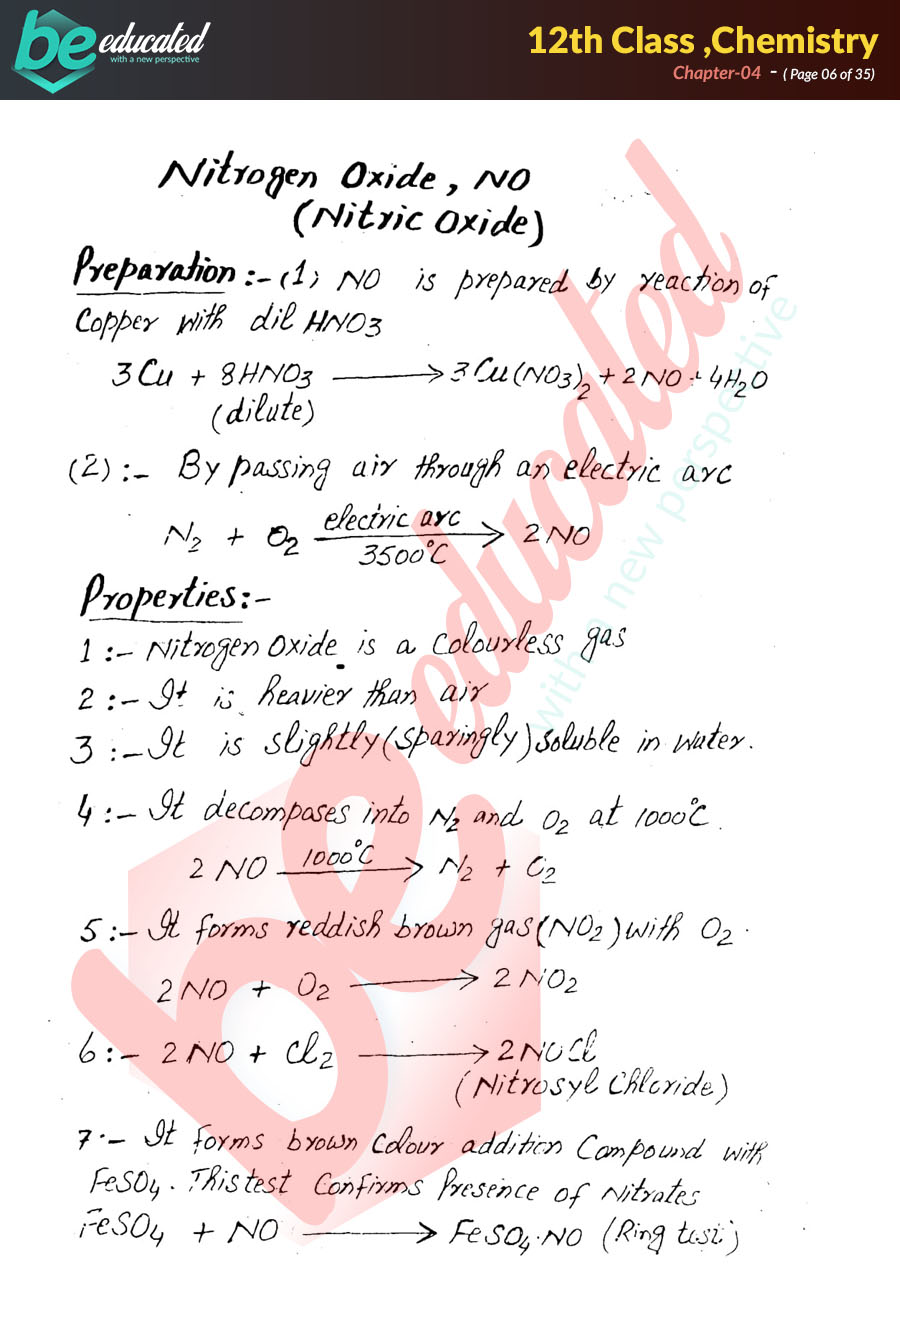 be educated
with a new perspective
12th Class ,Chemistry
Chapter-04 - ( Page 06 of 35)
Nitrogen Oxide, NO
(Nitric Oxide)
Preparation :- (1) NO is prepared by reaction of
Copper with dil HNO3
3Cu + 8HNO3 ⟶ 3Cu(NO3)2 + 2NO + 4H2O
(dilute)
(2) :- By passing air through an electric arc
N2 + O2 electric arc ⟶ 3500°C 2NO
Properties:-
1 :- Nitrogen Oxide is a Colourless gas
2 :- It is heavier than air
3 :- It is slightly (Sparingly) Soluble in water.
4 :- It decomposes into N2 and O2 at 1000°C.
2 NO 1000°C ⟶ N2 + O2
5 :- It forms reddish brown gas (NO2) with O2.
2NO + O2 ⟶ 2NO2
6 :- 2NO + Cl2 ⟶ 2NOCl
(Nitrosyl Chloride)
7 :- It forms brown Colour addition Compound with
FeSO4. This test Confirms Presence of Nitrates
FeSO4 + NO ⟶ FeSO4.NO (Ring test)
be educated
with a new perspective